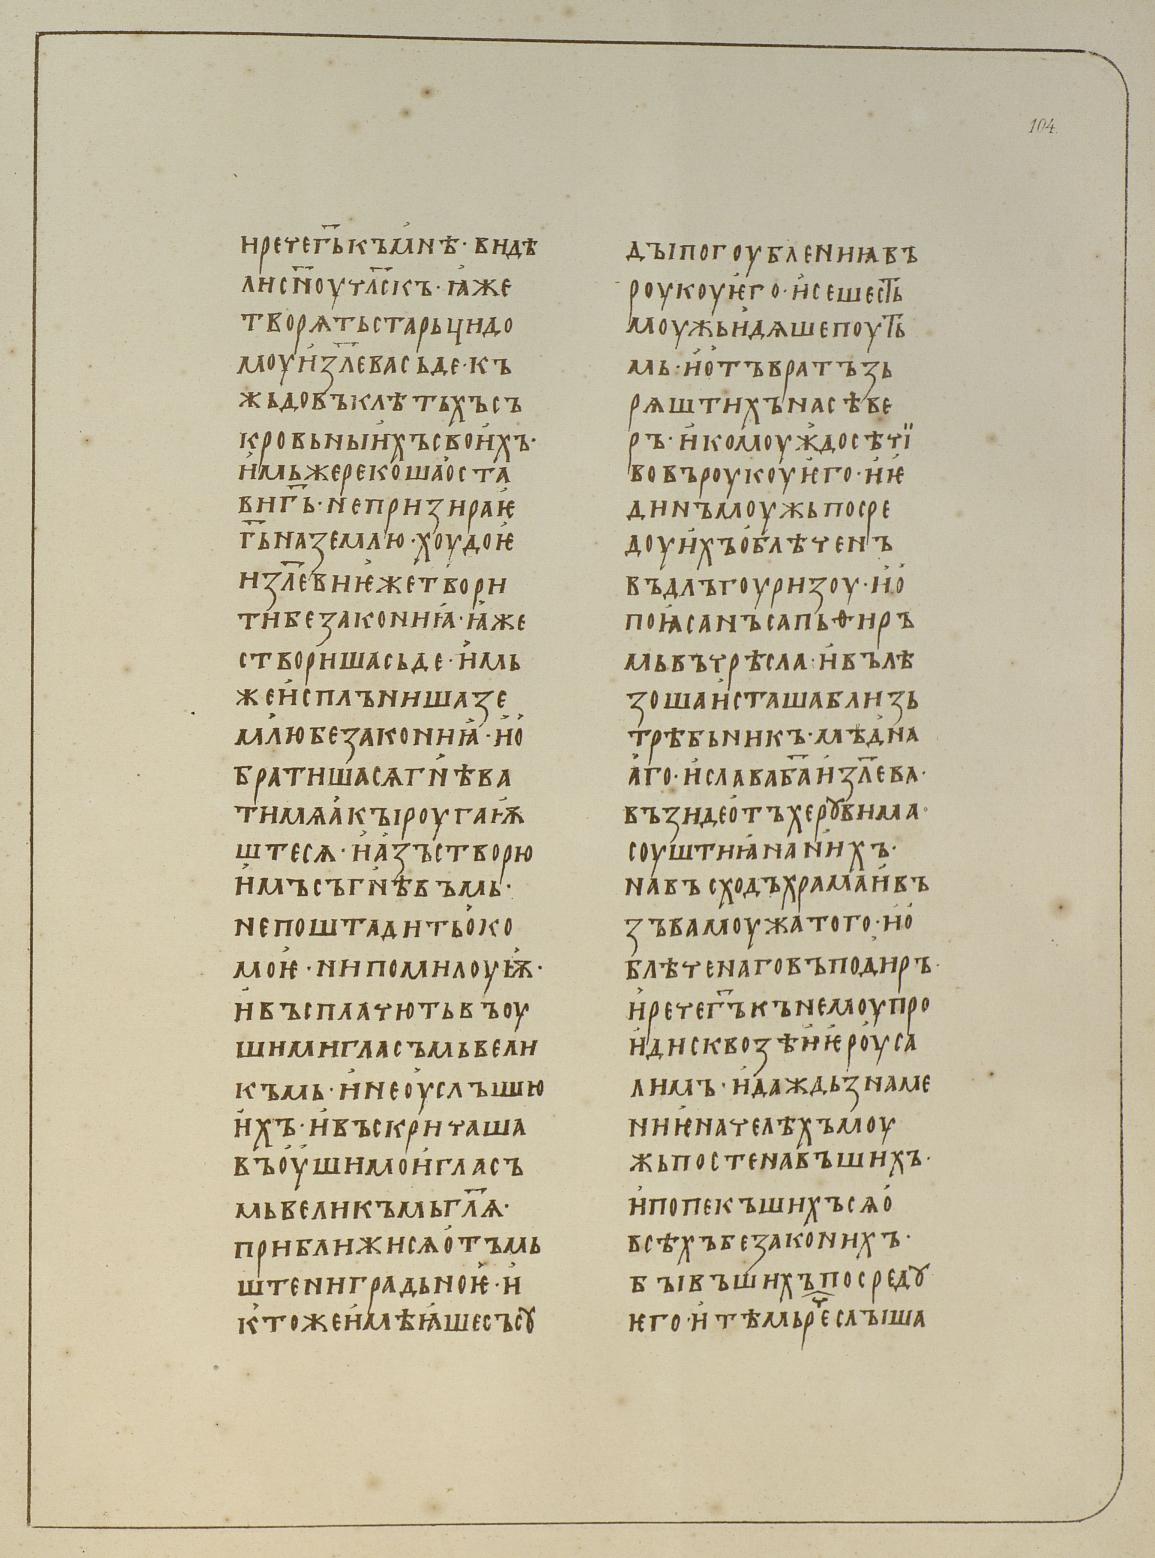 104.
и рече г҃ь къ мнѣ · видѣ
ли сн҃оу чл҃скъ · ꙗже
творѧть старьци до
моу из҃левa сьде · къ
жьдо въ клѣтьхъ съ
кровьныихъ своихъ ·
имьже рекоша оста
ви г҃ь · не призираѥ
г҃ь на землю · хоудоѥ
из҃лев иѥже твори
ти безакониꙗ · ꙗже
створиша сьде · имь
же исплъниша зе
млю безакониꙗ · и о
братиша сѧ гнѣва
ти мѧ акы роугаѭ
ште сѧ · и азъ створю
имъ съ гнѣвъмь ·
не поштадить око
моѥ · ни помилоуѭ ·
и въсплачють въ оу
шими гласъмь вели
къмь · и не оуслышю
ихъ · и въскричаша
въ оуши мои гласъ
мь великъмь гл҃ѧ ·
приближи сѧ отъмь
штениѥ градьноѥ · и
къто же имѣꙗше съсѹ
ды погоублениꙗ въ
роукоу ѥго · и се шесть
моужь идѧше поуть
мь · и отъ вратъ зь
рѧштихъ на сѣве
ръ · и комоуждо сѣчи
во въ роукоу ѥго · и ѥ
динъ моужь посре
доу ихъ облѣченъ
въ длъгоу ризоу · и о
поꙗсанъ сапьфиръ
мь въ чрѣсла · и вълѣ
зоша и сташа близь
трѣбьникъ · мѣдьна
аго · и слава б҃а из҃лева ·
възиде отъ херѹвима ·
соуштиꙗ на нихъ ·
на въсходъ храма и въ
зъва моужа того · и о
блѣченаго въ подиръ ·
и рече г҃ъ къ немоу про
иди сквозѣ иѥроуса
лимъ · и даждь зname
ниѥ на челѣхъ моу
жь постенавъшихъ ·
и попекъшихъ сѧ о
всѣхъ безаконихъ ·
бывъшихъ посредѹ
ѥго · и тѣмь рече слыша